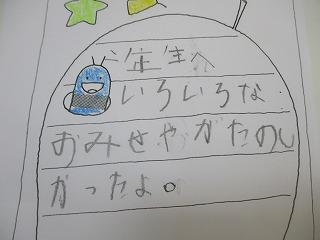 年生へ
いろいろな
おみせやがたのし
かったよ。